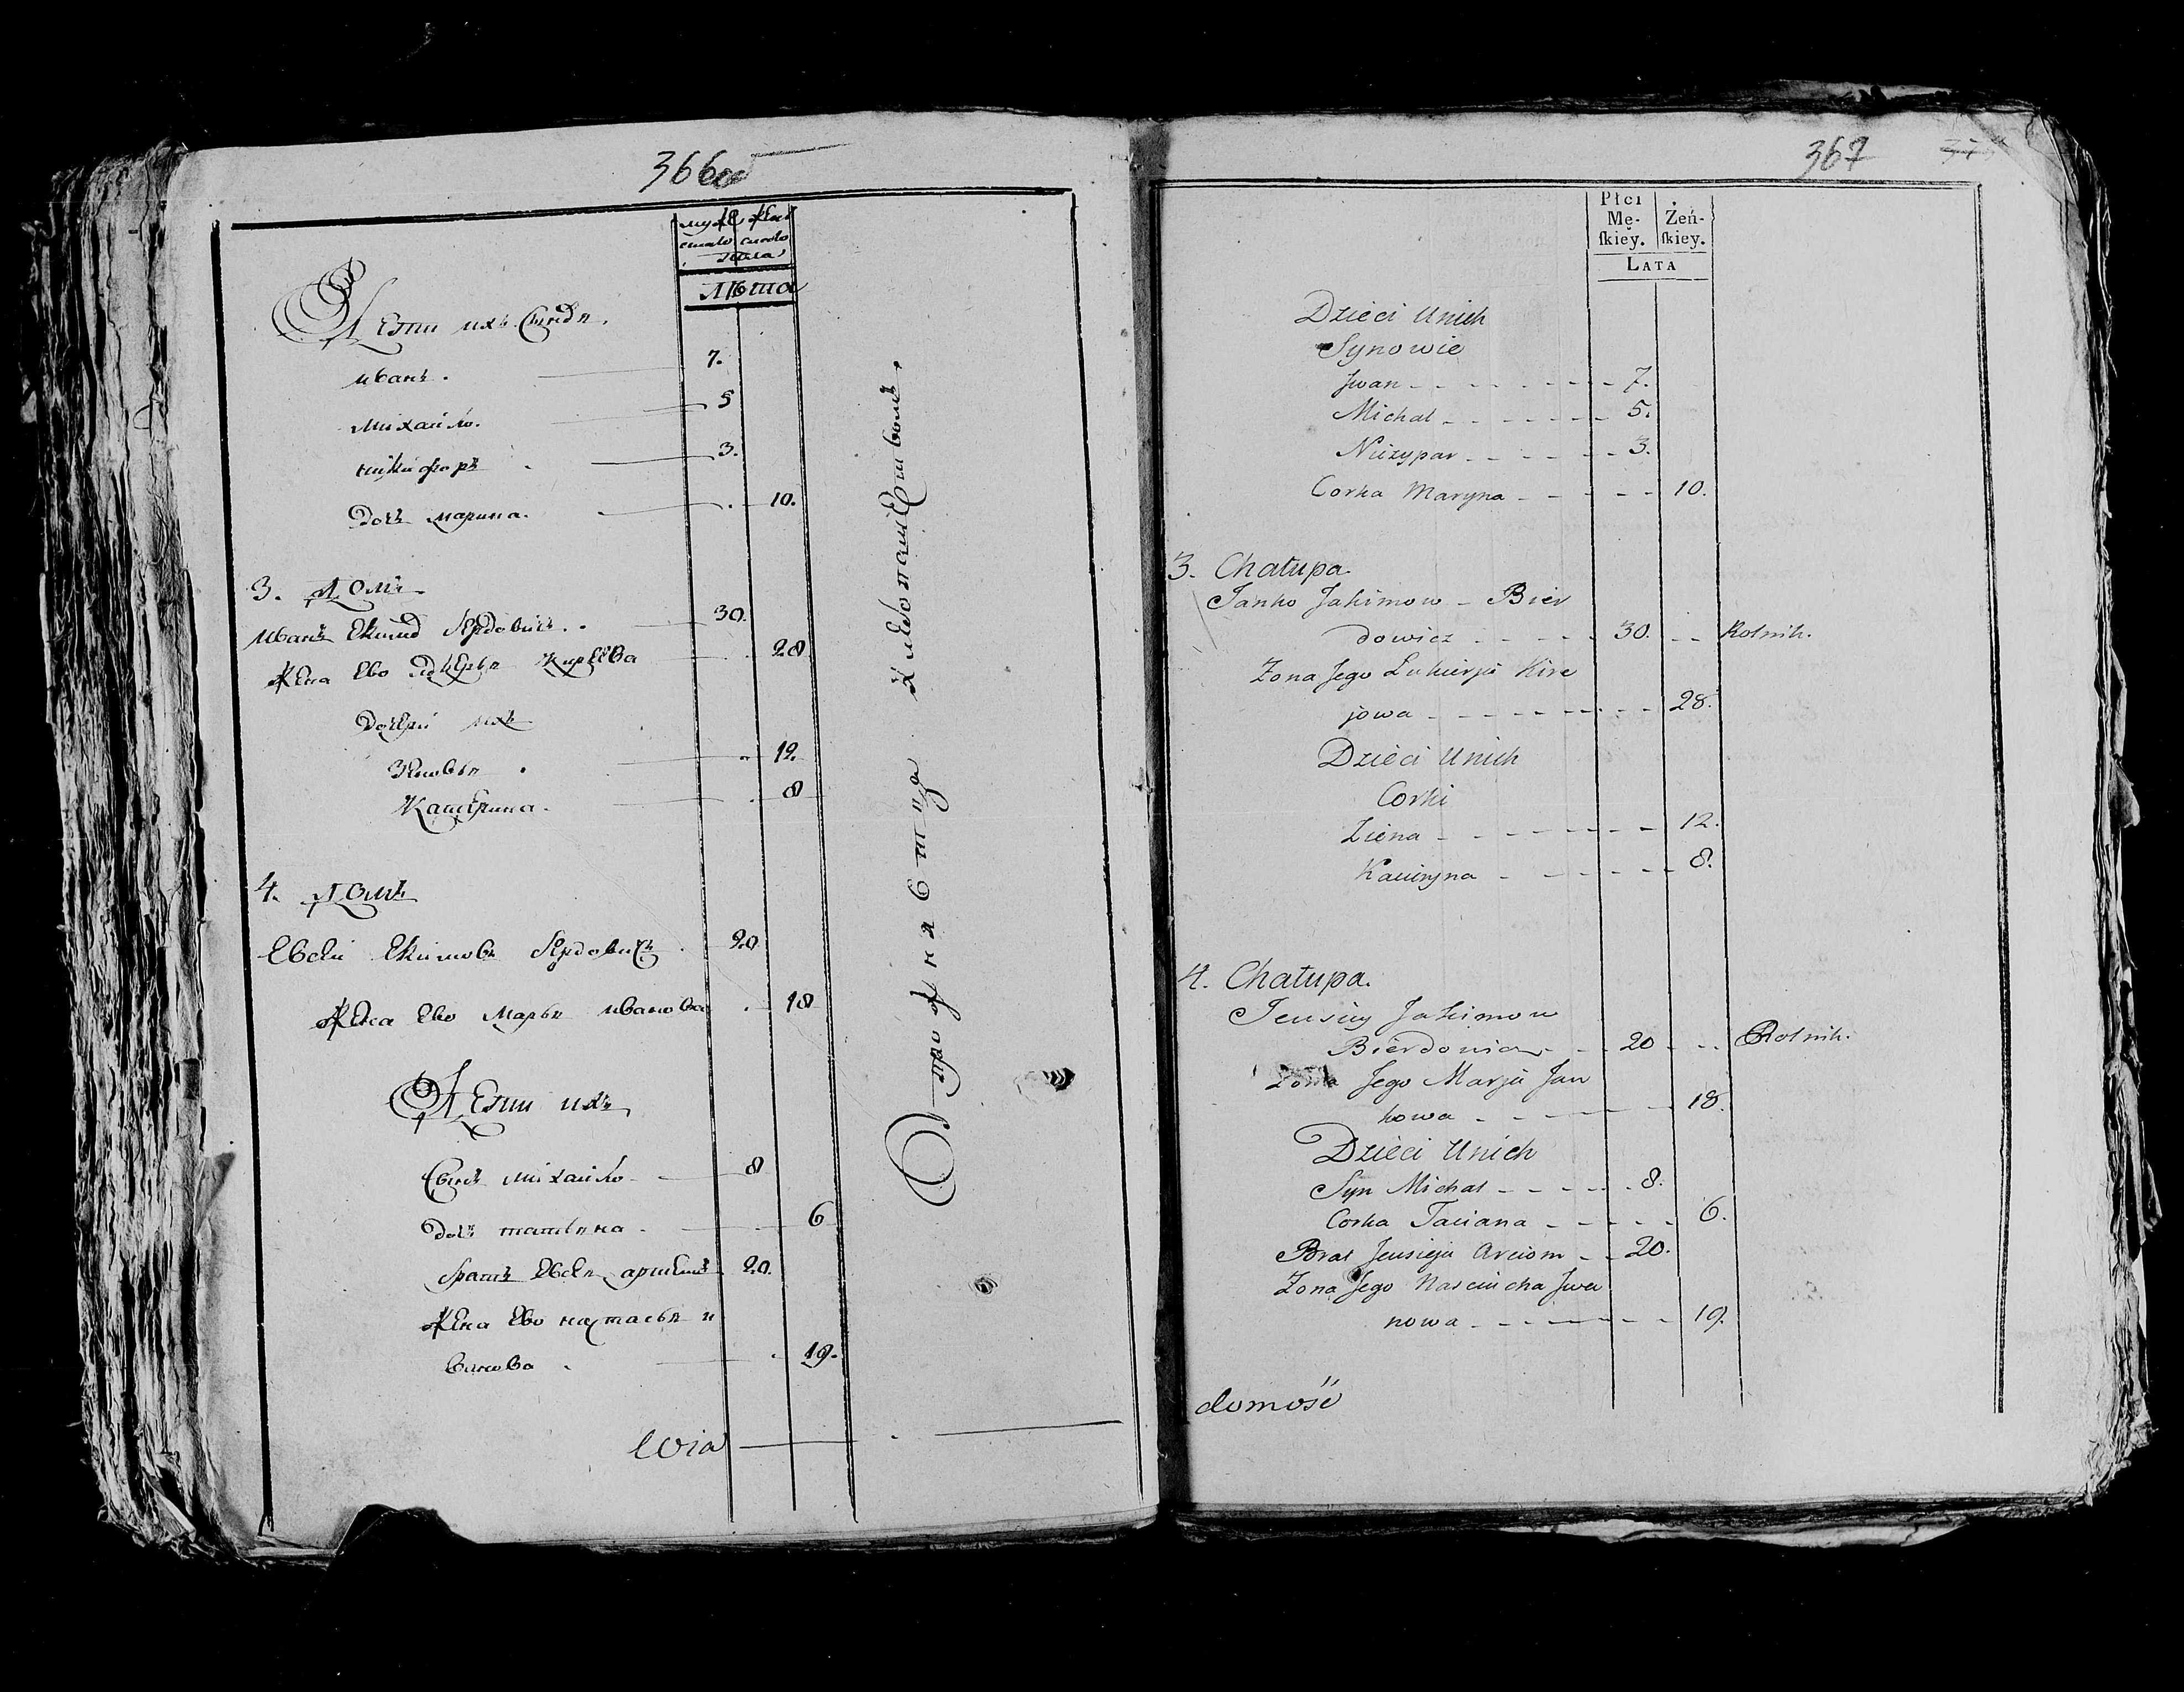 366об
муже женс
скаго скаго
пола
Лѣта
Дети ихъ Сыновя
иванъ. 7.
михайло. 5
никифоръ 3.
дочь марина. 10.
3. Домъ
иванъ Екимов Бердовичъ. 30.
жена Ево Киреева 28
дочери ихъ
Зеновья 12.
Катерина. 8
4. Домъ
Евсей Екимовъ Бердовичъ 20
жена Ево Марья иванова 18
Дети ихъ
Сынъ михайло 8
дочь татьяна. 6
братъ Евсея артемъ 20.
жена Ево настасья и
ванова 19.
Wia
упражняются хлебопашествомъ.
367
Płci
Mę- Żeń-
ſkiey. ſkiey.
LATA
Dzieci Unich
Synowie
Jwan 7.
Michał 5.
Niczypar 3.
Corka Maryna 10.
3. Chałupa
Janko Jakimow Bier
dowicz 30. Rolnik.
Zona Jego Łukierja Kire
jowa 28.
Dzieci Unich
Corki
Ziena 12.
Kaciryna 8.
4. Chałupa.
Jeusiey Jakimow
Bierdowicz 20 Rolnik.
Zona Jego Marja Jan
kowa 18.
Dzieci Unich
Syn Michał 8.
Corka Taciana 6.
Brat Jeusieja Arciom 20.
Zona Jego Nasciucha Jwa
nowa 19.
domość